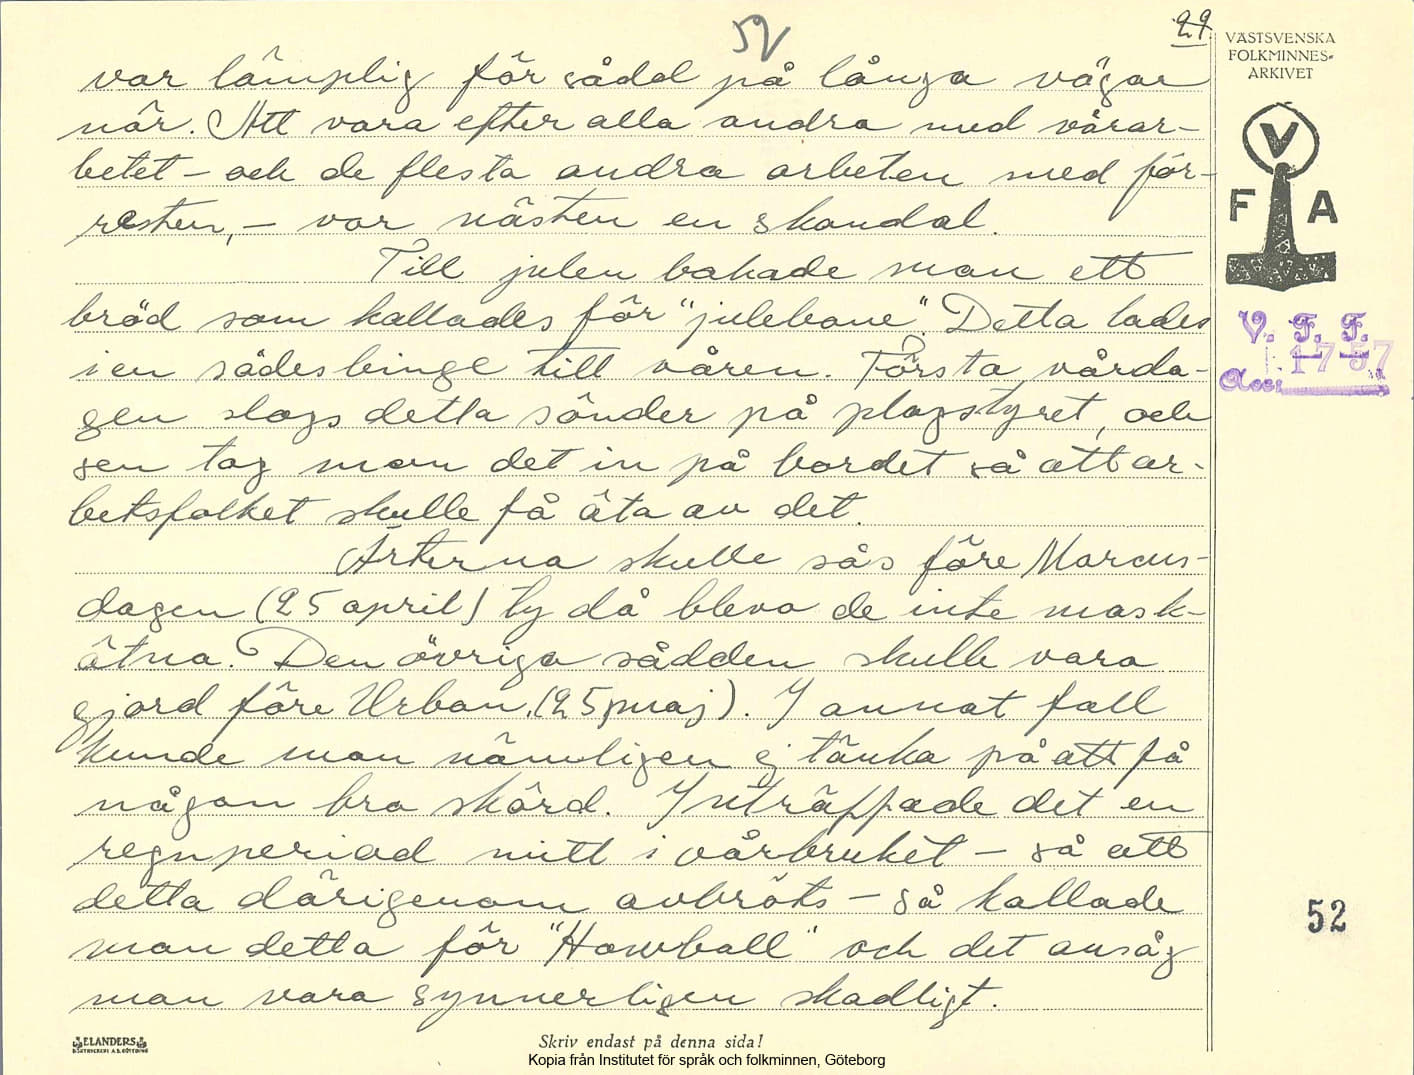 52
29
VÄSTSVENSKA
FOLKMINNES-
ARKIVET
V
F A
V. F. F.
1757
Acc:
var lämplig för sådd på långa vägar
när. Att vara efter alla andra med vårar-
betet – och de flesta andra arbeten med för-
resten, – var nästen en skandal.
Till julen bakade man ett
bröd som kallades för "julebane". Detta lades
i en sädesbinge till våren. Första vårda-
gen slogs detta sönder på plogstyret, och
sen tog man det in på bordet så att ar-
betsfolket skulle få äta av det.
Ärterna skulle sås före Marcus-
dagen (25 april) ty då bleva de inte mask-
ätna. Den övriga sådden skulle vara
gjord före Urban, (25 maj). I annat fall
kunde man nämligen ej tänka på att få
någon bra skörd. Inträffade det en
regnperiod mitt i vårbruket – så att
detta därigenom avbröts – så kallade
man detta för och det ansåg
man vara synnerligen skadligt.
52
ELANDERS
BOKTRYCKERI A.B. GÖTEBORG
Skriv endast på denna sida!
Kopia från Institutet för språk och folkminnen, Göteborg